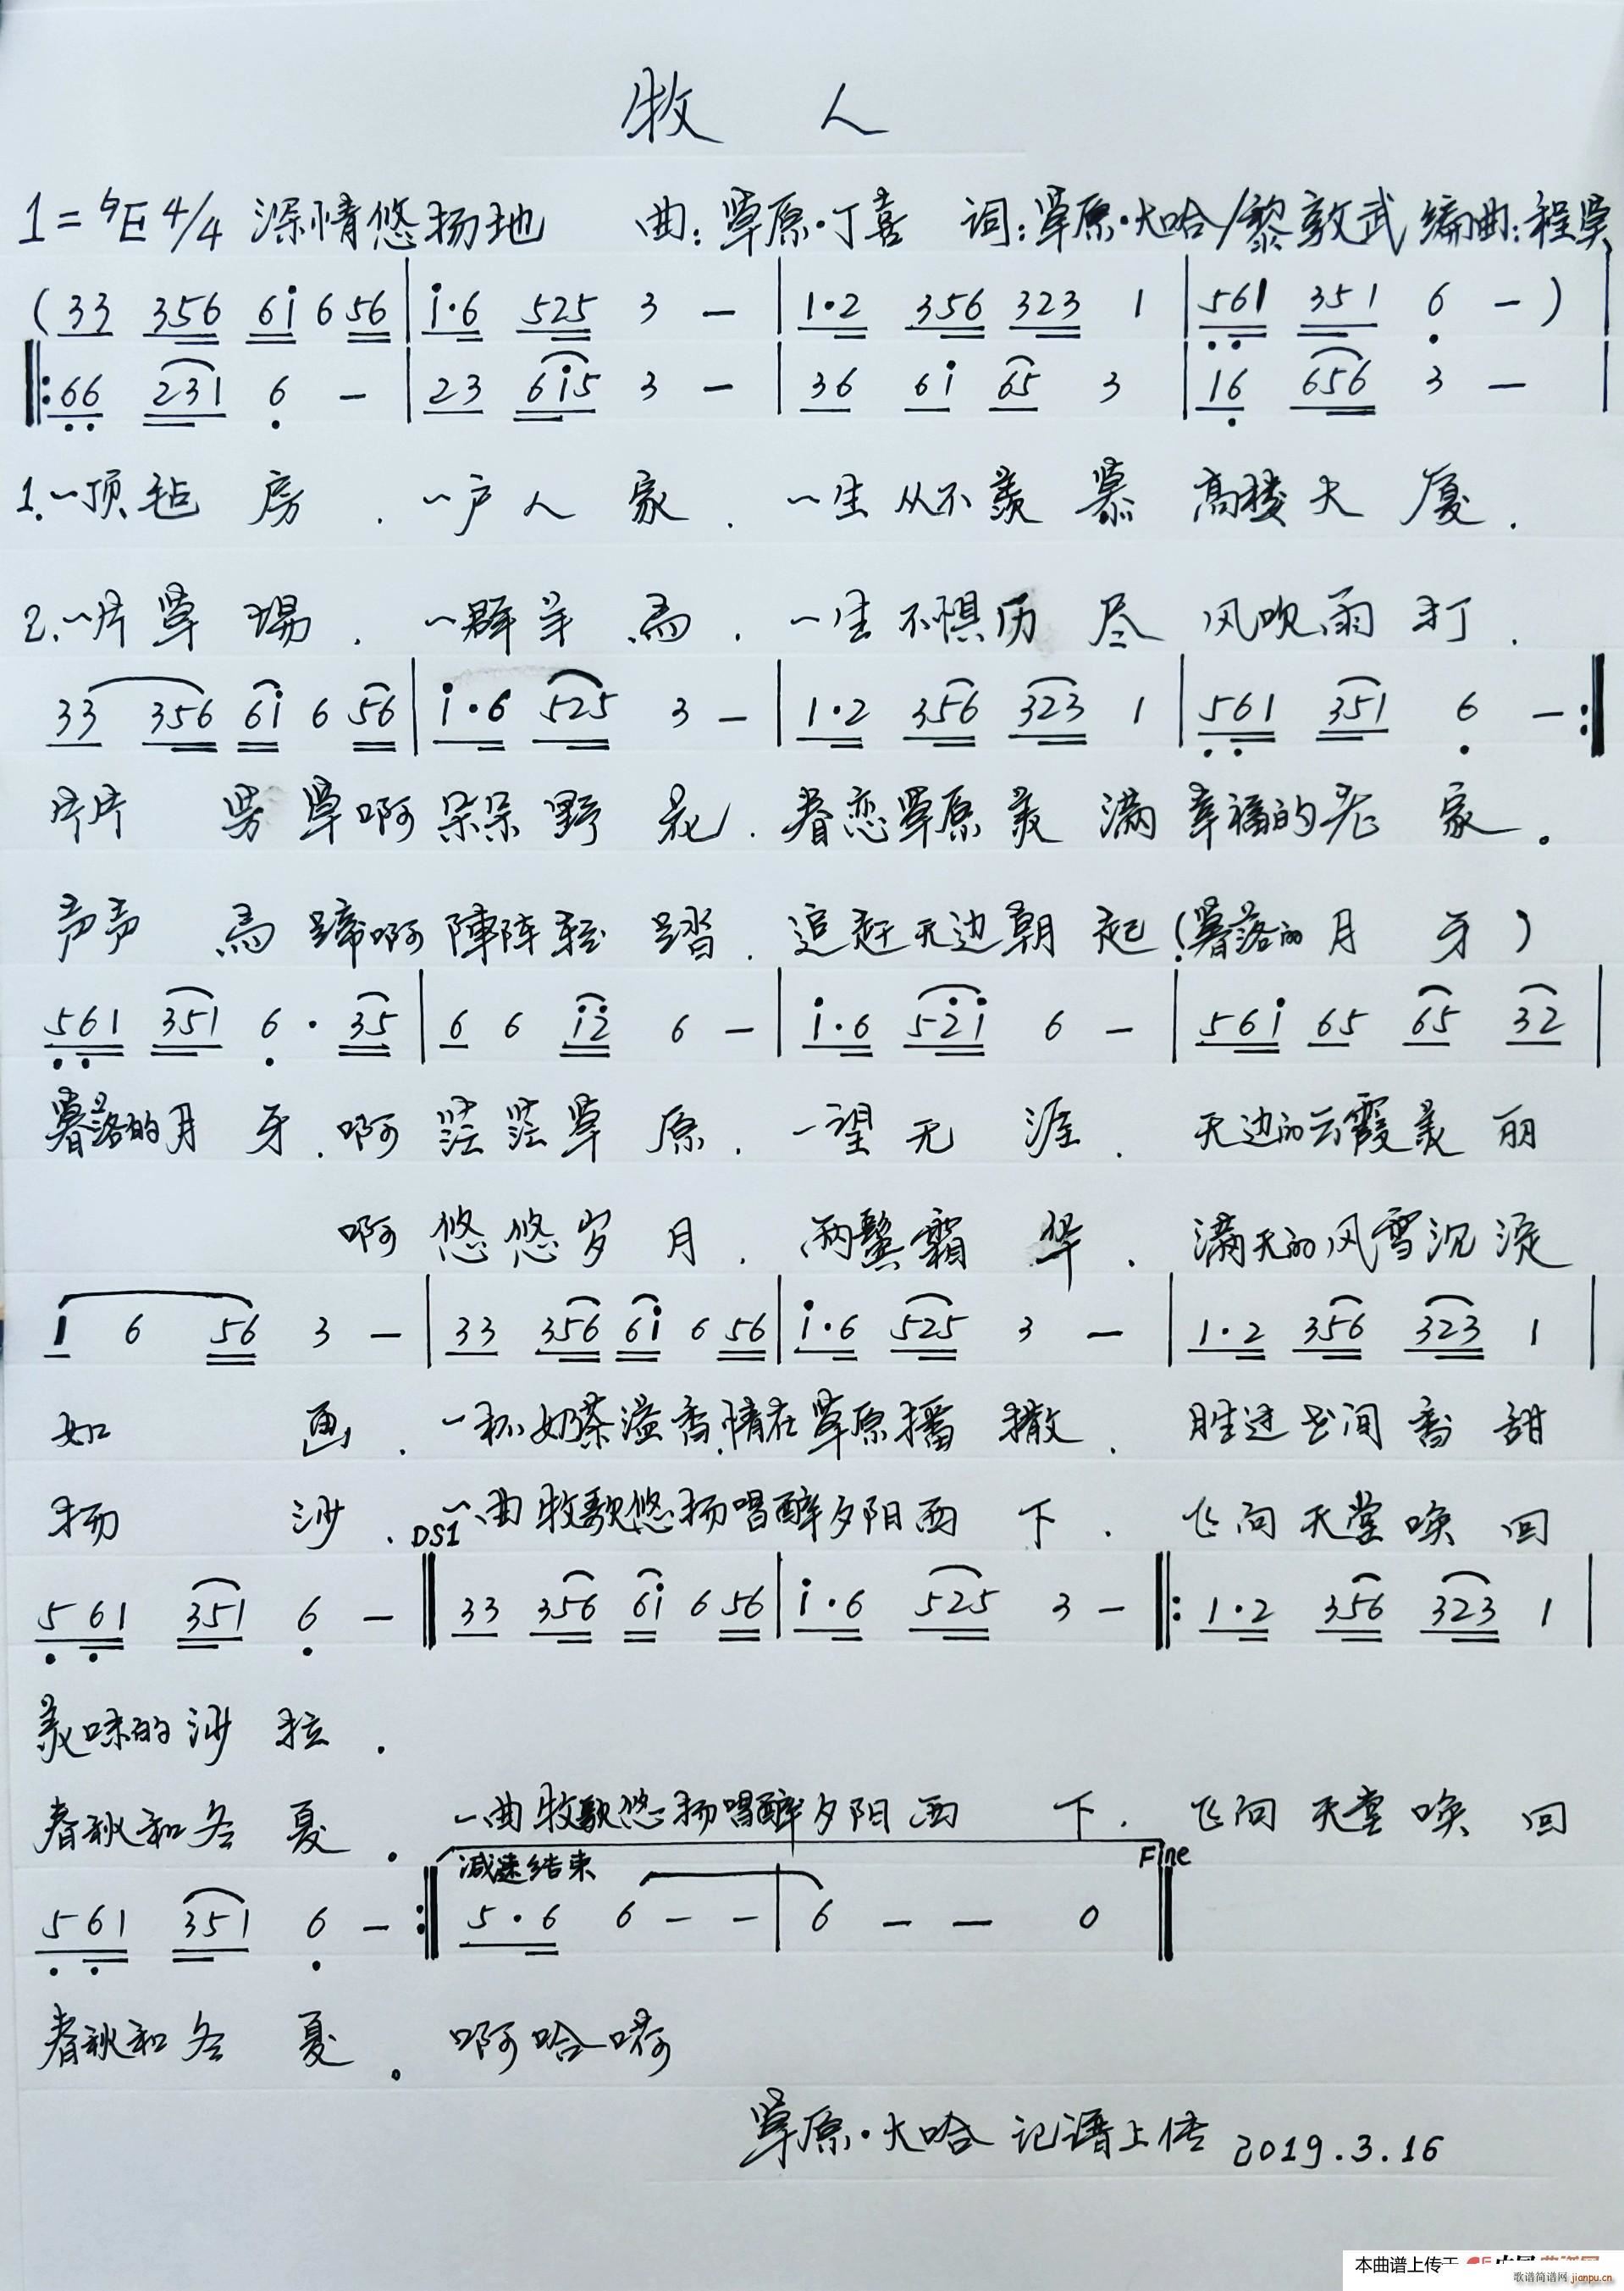 牧 人
1=♮E 4/4 深情悠扬地 曲:草原·丁喜 词:草原·大哈/黎敦武 编曲:程昊
(33 356 6i 6 56 | i·6 525 3 — | 1·2 356 323 1 | 561 351 6 — ) |
‖: 66 231 6 — | 23 6i5 3 — | 36 6i 65 3 | 16 656 3 — |
1.一顶毡房.一户人家.一生从不羡慕高楼大厦.
2.一片草场.一群羊馬.一生不惧历尽风吹雨打.
33 356 6i 6 56 | i·6 525 3 — | 1·2 356 323 1 | 561 351 6 — :‖
片片芳草啊朵朵野花.眷恋草原美满幸福的老家。
声声馬蹄啊陣阵轻踏.追赶无边朝起(暮落的月牙)
561 351 6 · 35 | 6 6 i2 6 — | i·6 52i 6 — | 56i 65 65 32 |
暮落的月牙.啊茫茫草原.一望无涯.天边的云霞美丽
啊悠悠岁月.两鬓霜华.满天的风雪沉淀
i 6 56 3 — | 33 356 6i 6 56 | i·6 525 3 — | 1·2 356 323 1 |
如画.一杯奶茶溢香.情在草原播撒.胜过世间香甜
扬沙.一曲牧歌悠扬唱醉夕阳西下.飞向天堂唤回
DS1
561 351 6 — ‖ 33 356 6i 6 56 | i·6 525 3 — ‖: 1·2 356 323 1 |
美味的沙拉.
春秋和冬夏。一曲牧歌悠扬唱醉夕阳西下.飞向天堂唤回
减速结束 Fine
561 351 6 — :‖ 5·6 6 — — | 6 — — 0 ‖
春秋和冬夏。啊哈嗬
草原·大哈 记谱上传 2019.3.16
本曲谱上传于
歌谱简谱网 jianpu.cn